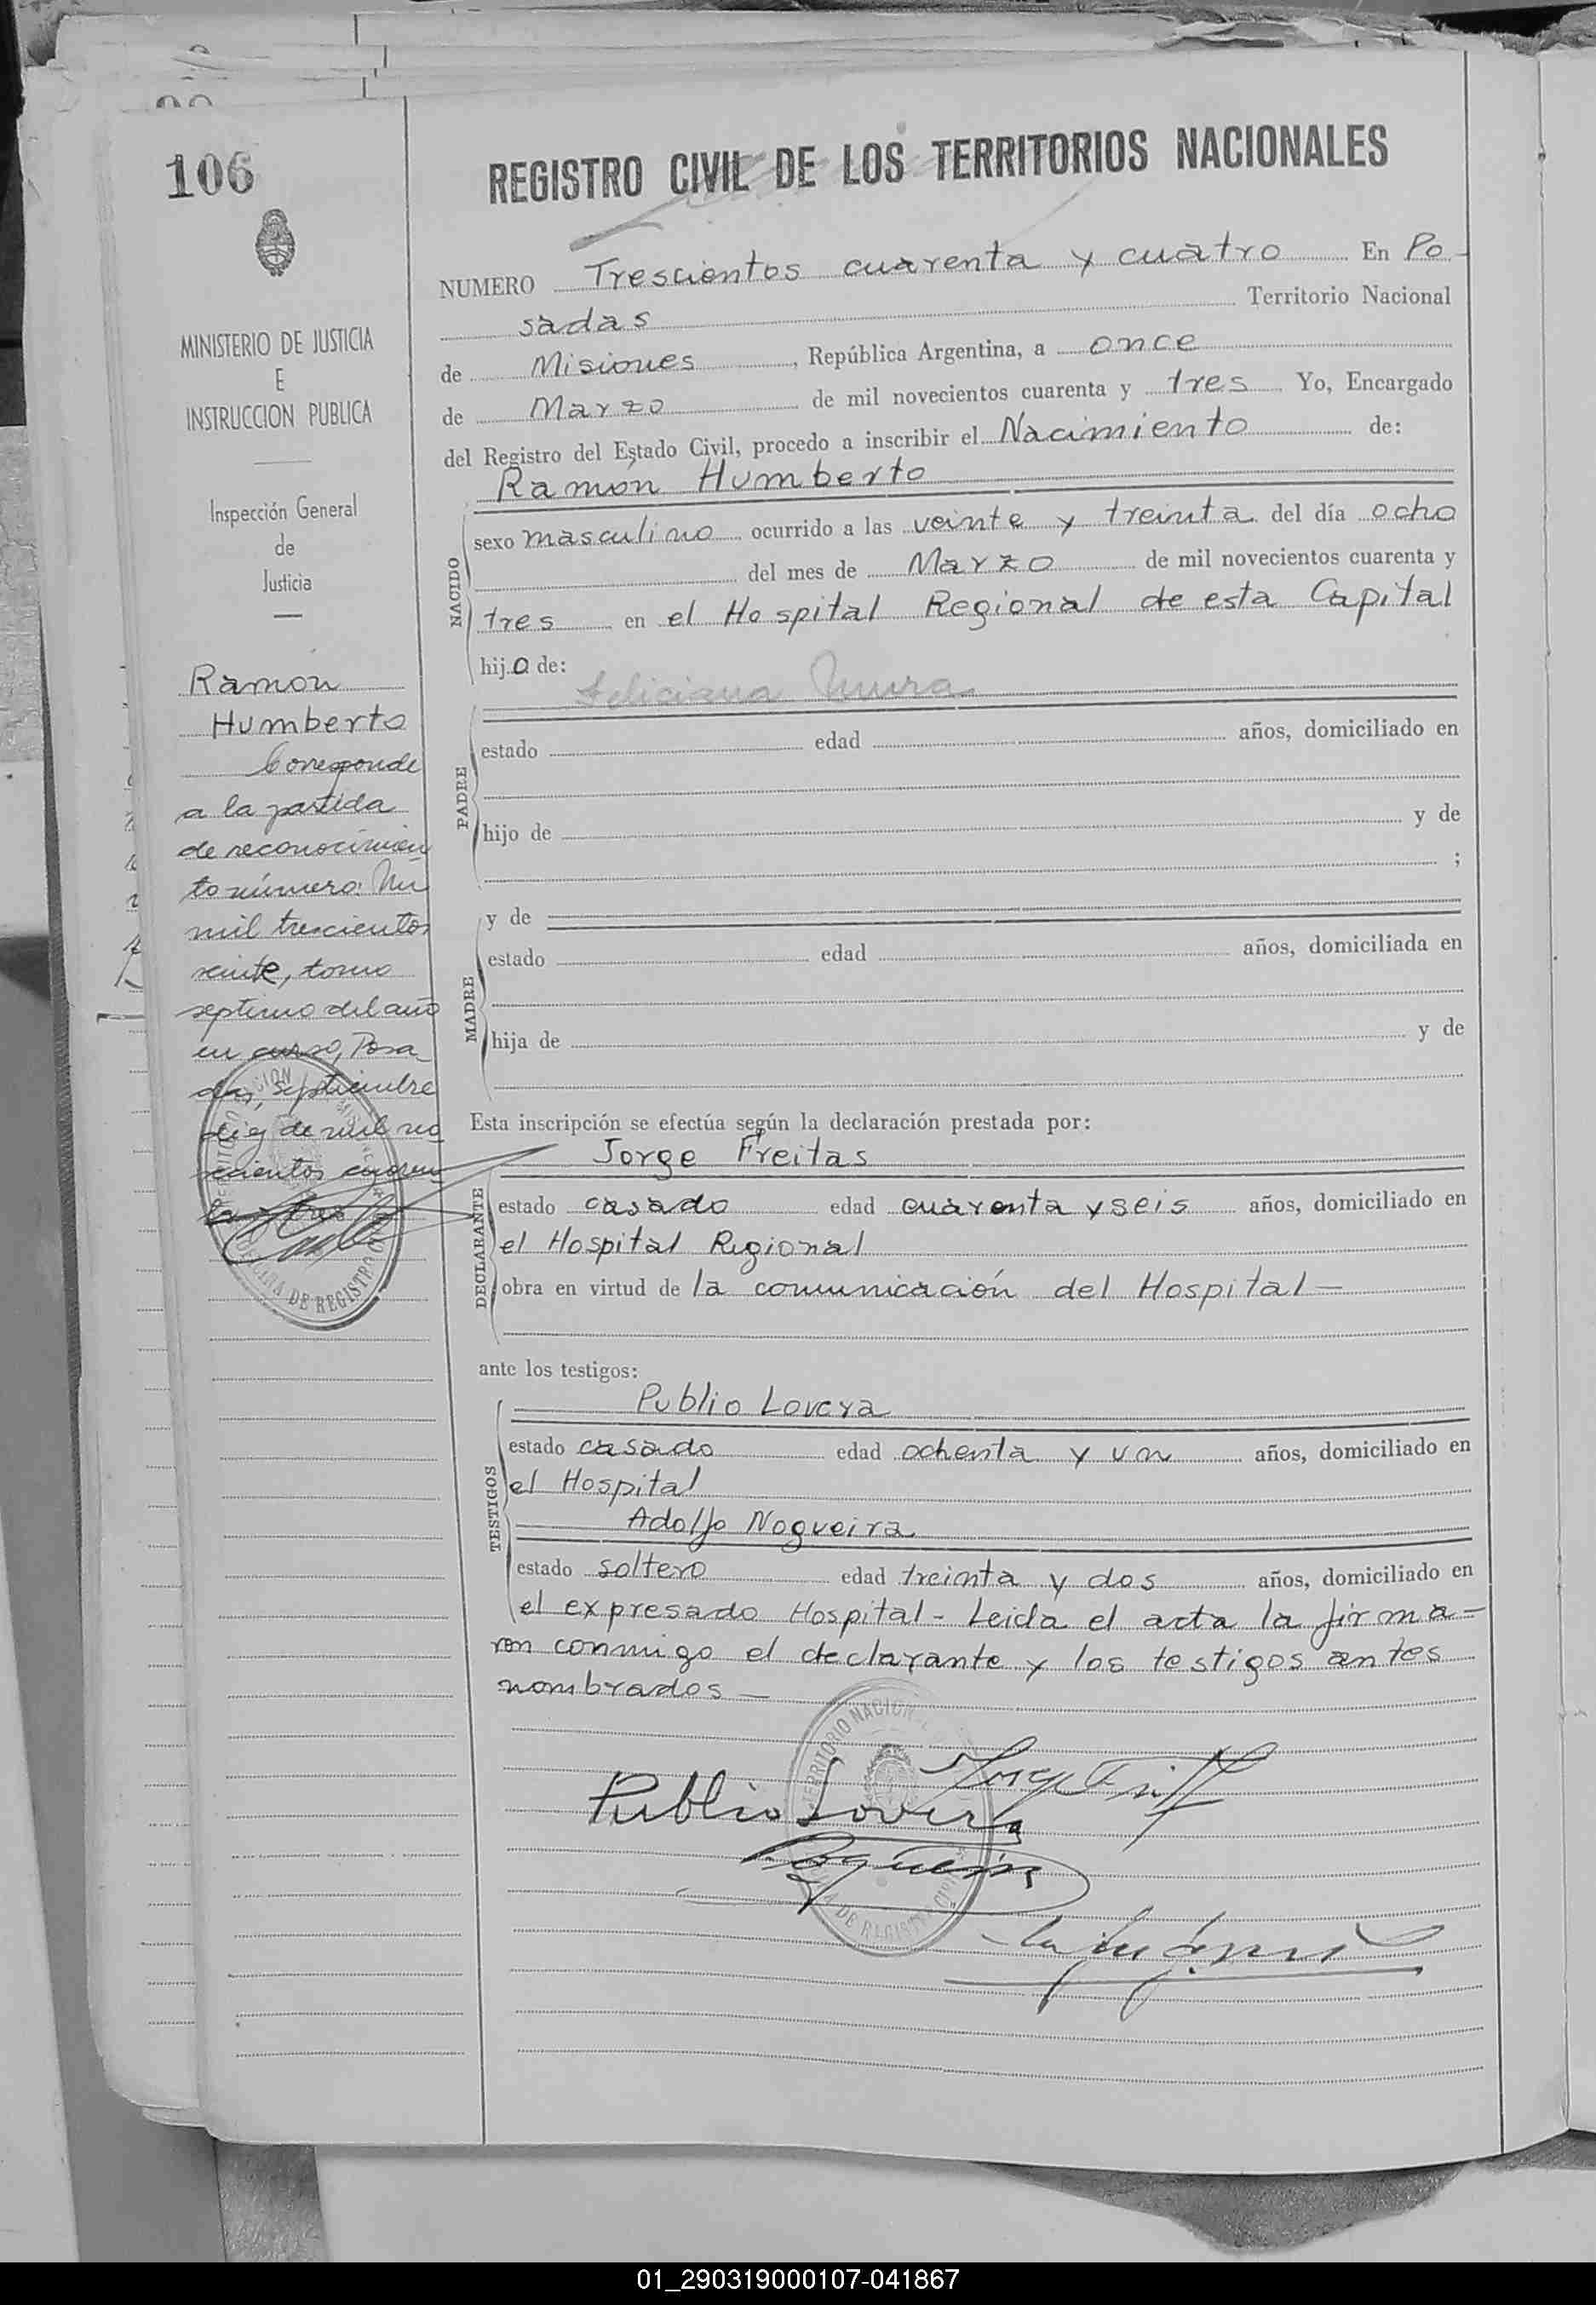 106
MINISTERIO DE JUSTICIA
E
INSTRUCCION PUBLICA
Inspección General
de
Justicia
Ramon
Humberto
Corresponde
a la partida
de reconocimien
to número: Un
mil trescientos
veinte, tomo
septimo del año
en curso, Posa
das, Septiembre
diez de mil no
vecientos cuaren
ta y tres
REGISTRO CIVIL DE LOS TERRITORIOS NACIONALES
NUMERO Trescientos cuarenta y cuatro En Po-
sadas Territorio Nacional
de Misiones, República Argentina, a once
de Marzo de mil novecientos cuarenta y tres Yo, Encargado
del Registro del Estado Civil, procedo a inscribir el Nacimiento de:
Ramón Humberto
NACIDO
sexo masculino ocurrido a las veinte y treinta del día ocho
del mes de Marzo de mil novecientos cuarenta y
tres en el Hospital Regional de esta Capital
hijo de:
Feliciana
PADRE
estado edad años, domiciliado en
hijo de y de
;
MADRE
y de
estado edad años, domiciliada en
hija de y de
Esta inscripción se efectúa según la declaración prestada por:
Jorge Freitas
DECLARANTE
estado casado edad cuarenta y seis años, domiciliado en
el Hospital Regional
obra en virtud de la comunicación del Hospital—
ante los testigos:
Publio Lovera
TESTIGOS
estado casado edad ochenta y un años, domiciliado en
el Hospital
Adolfo Nogueira
estado soltero edad treinta y dos años, domiciliado en
el expresado Hospital- Leida el acta la firma-
ron conmigo el declarante y los testigos antes
nombrados—
TERRITORIO NACION
DE REGISTRO
Publio Lovera
Nogueira
01_290319000107-041867